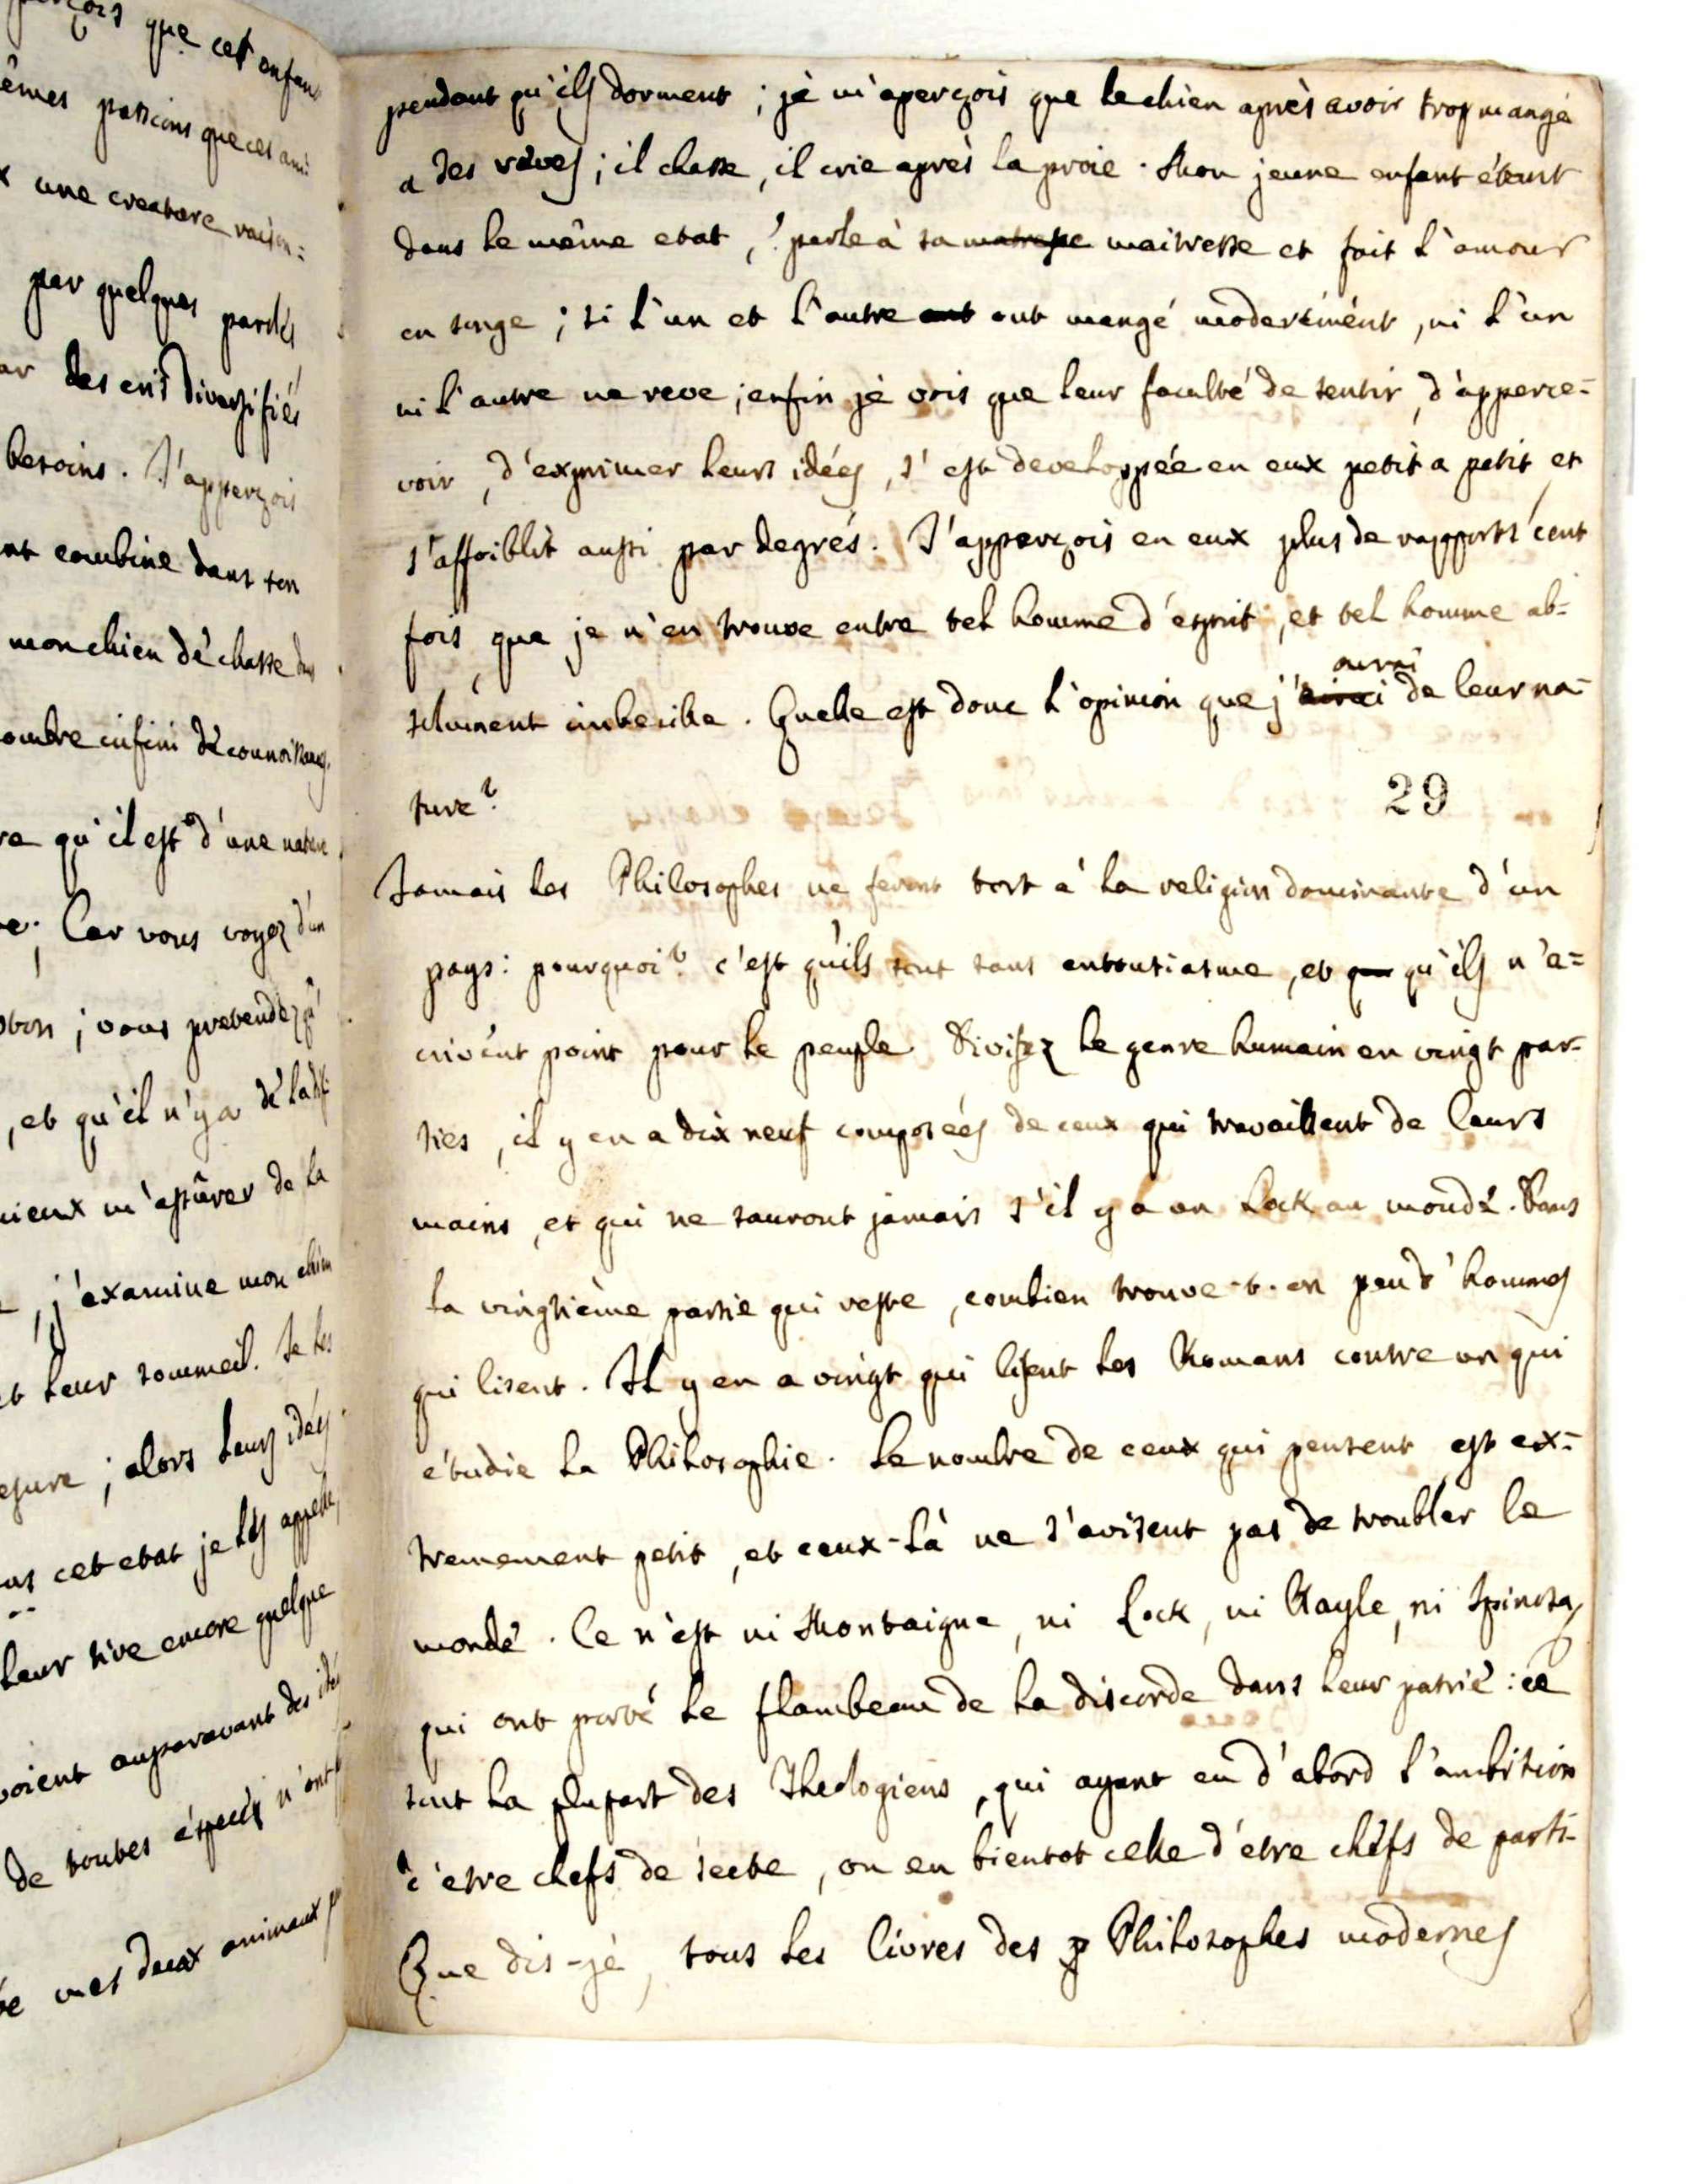 perçois que cet enfan
êmes passions que ces ani
x une creature raison:
par quelques paroles
ar des cris diversifiés
besoins. J'apperçois
nt combine dans son
mon chien de chasse dans
ombre infini de connoissances,
re qu'il est d'une nature
re; Car vous voyez d'un
oton; vous pretendez qu
, et qu'il n'y a de la dif
mieux m'assûrer de la
, j'examine mon chien
et leur sommeil. Je les
esure; alors leurs idées
ans cet etat je les appelle,
leur rive encore quelque
voient auparavant des idé
de toutes éspeces n'ont p
ée mes deux animaux p
pendant qu'ils dorment; je m'aperçois que le chien après avoir trop mangé
a des rèves; il chasse, il crie après la proie. Mon jeune enfant étant
dans le même etat, parle à sa matresse maitresse et fait l'amour
en songe; si l'un et l'autre ont ont mangé moderément, ni l'un
ni l'autre ne reve; enfin je vois que leur faculté de sentir, d'apperce=
voir, d'exprimer leurs idées, s'est developpée en eux petit a petit, et
s'affoiblit aussi par degrés. J'apperçois en eux plus de rapports cent
fois, que je n'en trouve entre tel homme d'esprit, et tel homme ab=
solument imbecille. Quelle est donc l'opinion que j'airai aurai de leur na=
ture?
29
Jamais les Philosophes ne feront tort à la religion dominante d'un
pays: pourquoi? c'est qu'ils sont sans entousiasme, et que qu'ils n'e=
crivent point pour le peuple Divisez le genre humain en vingt par=
ties, il y en a dix neuf composées de ceux qui travaillent de leurs
mains, et qui ne sauront jamais s'il y a un Lock au monde. Dans
la vingtième partie qui reste, combien trouve-t-on peu d'hommes
qui lisent. Il y en a vingt qui lisent les Romans contre un qui
étudie la Philosophie. Le nombre de ceux qui pensent, est ex=
tremement petit, et ceux-là ne s'avisent pas de troubler le
monde. Ce n'est ni Montaigne, ni Lock, ni Bayle, ni Spinosa,
qui ont porté le flambeau de la discorde dans leur patrie: ce
sont la plupart des Theologiens, qui ayant eu d'abord l'ambition
d'être chefs de secte, on eu bientot celle d'etre chefs de parti-
Que dis-je, tous les livres des p Philosophes modernes